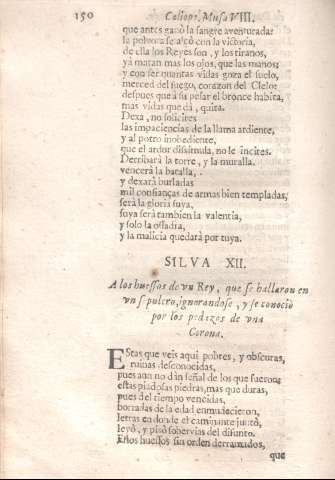 150
Caliope, Musa VIII.
que antes ganò la sangre aventurada:
la polvora se alçò con la victoria,
de ella los Reyes son, y los tiranos,
ya matan mas los ojos, que las manos:
y con ser quantas vidas goza el suelo,
merced del fuego, corazon del Cielo:
despues que à su pesar el bronce habita,
mas vidas que dà, quita.
Dexa, no solicites
las impaciencias de la llama ardiente,
y al potro inobediente,
que el ardor dissimula, no le incites.
Derribarà la torre, y la muralla.
vencerà la batalla,
y dexarà burladas
mil confianças de armas bien templadas,
serà la gloria suya,
suya serà tambien la valentia,
y solo la ossadia,
y la malicia quedarà por tuya.
SILVA XII.
A los huessos de un Rey, que se hallaron en
un sepulcro, ignorandose, y se conociò
por los pedazos de una
Corona.
EStas que veis aqui pobres, y obscuras,
ruinas desconocidas,
pues aun no dàn señal de los que fueron;
estas piadosas piedras, mas que duras,
pues del tiempo vencidas,
borradas de la edad enmudecieron,
letras en donde el caminante junto,
leyò, y pisò sobervias del difunto.
Estos huessos sin orden derramados,
que